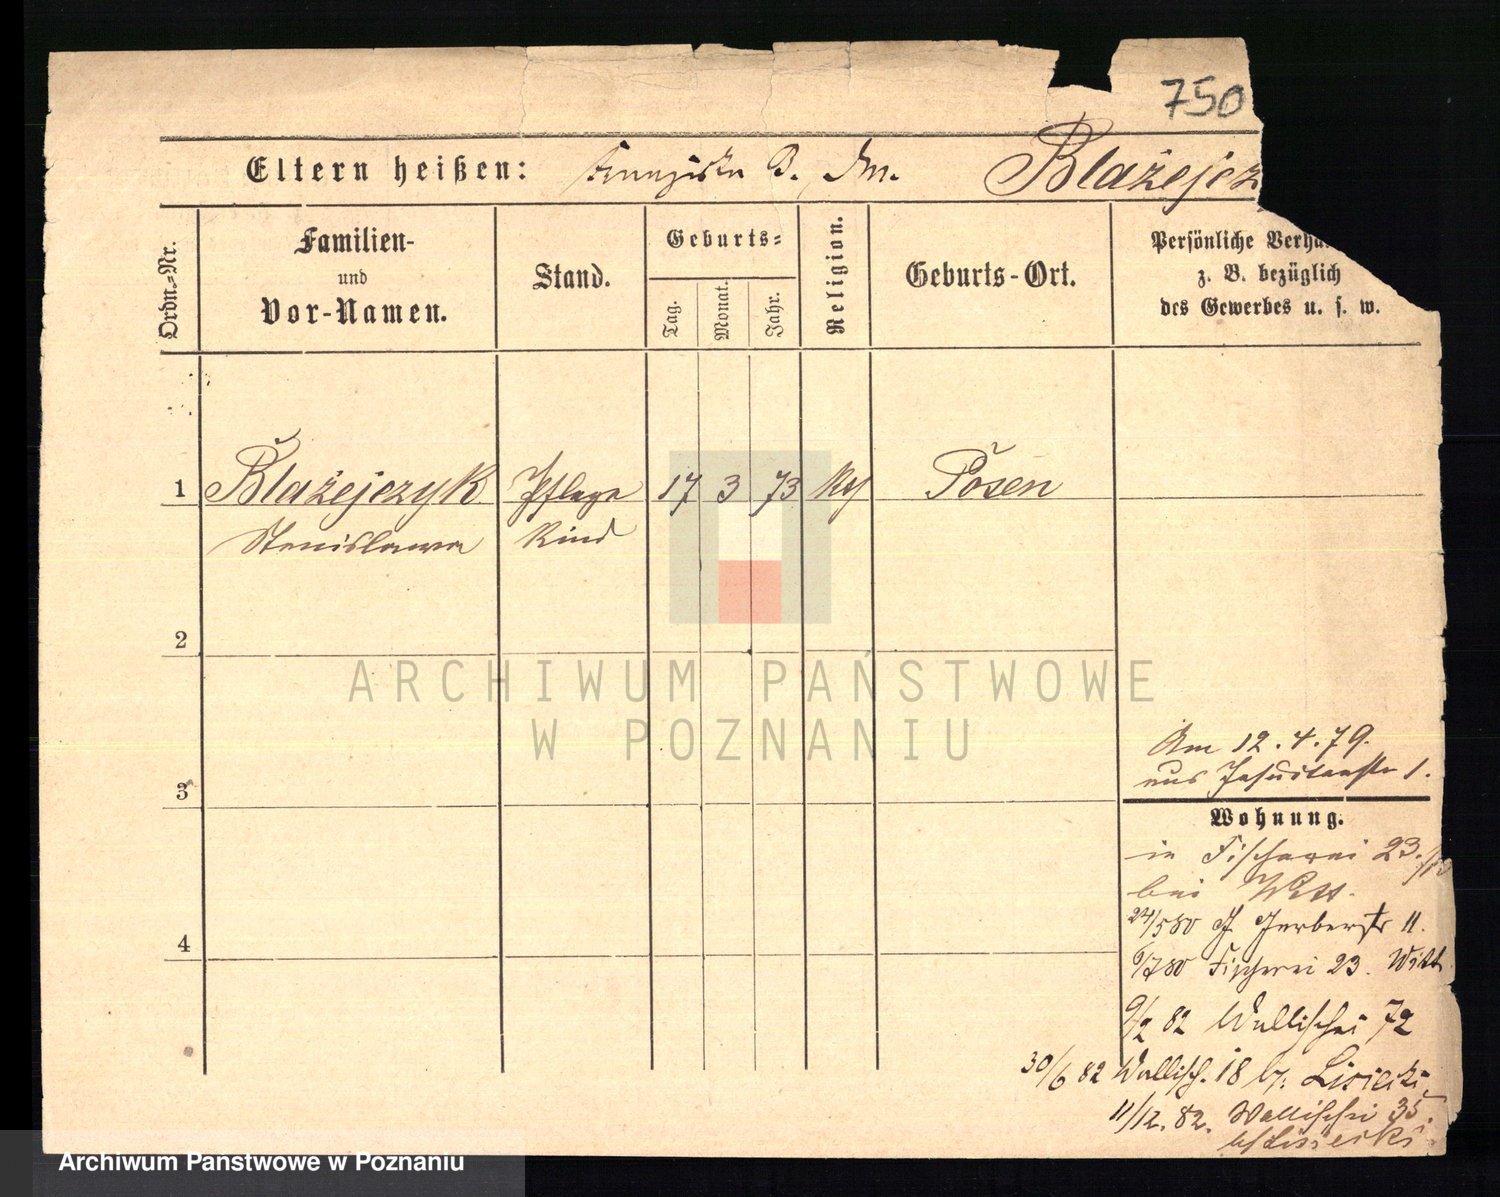 750
Eltern heißen: Franziska B. Blażejcz
Ordn.-Nr.
Familien-
und
Vor-Namen.
Stand.
Geburts-
Tag.
Monat.
Jahr.
Religion.
Geburts-Ort.
Persönliche Verhä
z. B. bezüglich
des Gewerbes u. s. w.
1 Blażejczyk Pflege 17 3 73 Posen
Stanislawa Kind
2
3
4
Am 12.4.79.
aus Jesuitenstr 1.
Wohnung.
in Fischerei 23.
bei Witt.
24/5 80 Gerberstr 11.
6/7 80 Fischerei 23. Witt
9/2 82 Wallischei 72
30/6 82 Wallisch. 18 b/: Lisiecki
11/12.82. Wallischei 35.
b/ Lissiecki
ARCHIWUM PAŃSTWOWE
W POZNANIU
Archiwum Państwowe w Poznaniu